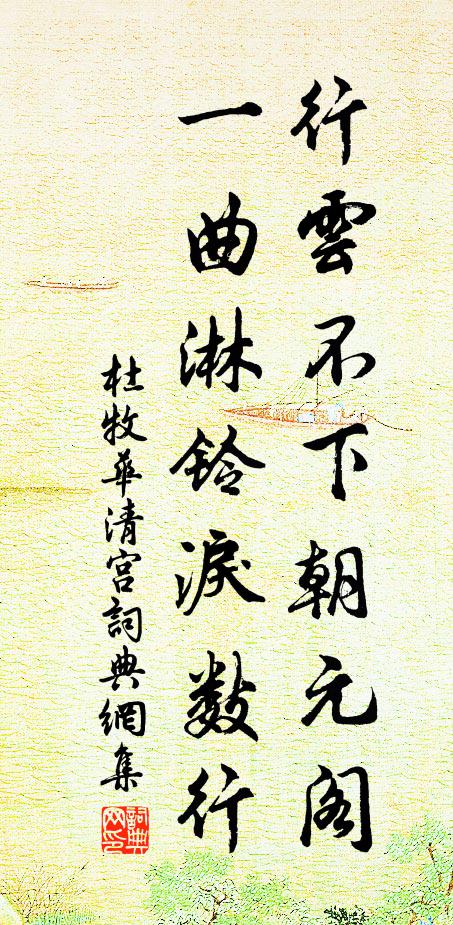 行雲不下朝元阁
一曲淋鈴淚數行
杜牧華清宮詞典網集
詞典網印